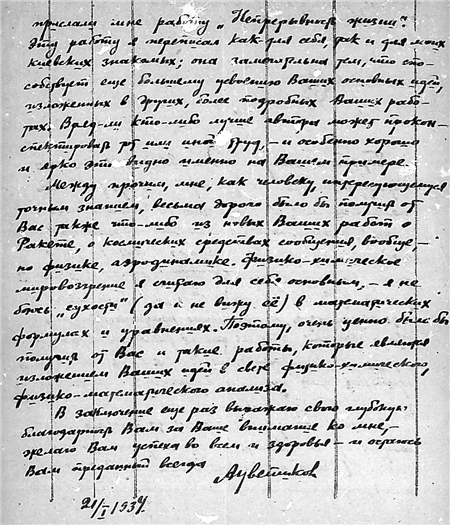 прислали мне работу „Непрерывность жизни".
Эту работу я переписал как для себя, так и для моих
киевских знакомых; она замечательна тем, что спо-
собствует еще большему усвоению Ваших основных идей,
изложенных в других, более подробных Ваших рабо-
тах. Вряд-ли кто-либо лучше автора может прокон-
спектировать тот или иной труд, – и особенно хорошо
и ярко это видно именно на Вашем примере.
Между прочим, мне, как человеку, интересующемуся
точным знанием, весьма дорого было бы получить от
Вас также что-либо из новых Ваших работ о
Ракете, о космических средствах сообщения, вообще, –
по физике, аэродинамике. Физико-химическое
мировоззрение я считаю для себя основным, – я не
боюсь „сухости" (да и не вижу её) в математических
формулах и уравнениях. Поэтому, очень ценно было бы
получить от Вас и такие работы, которые являются
изложением Ваших идей в свете физико-химического,
физико-математического анализа.
В заключение еще раз выражаю свою глубокую
благодарность Вам за Ваше внимание ко мне,
желаю Вам успеха во всем и здоровья – и остаюсь
Вам преданный всегда
АЦветиков
21/I 1934